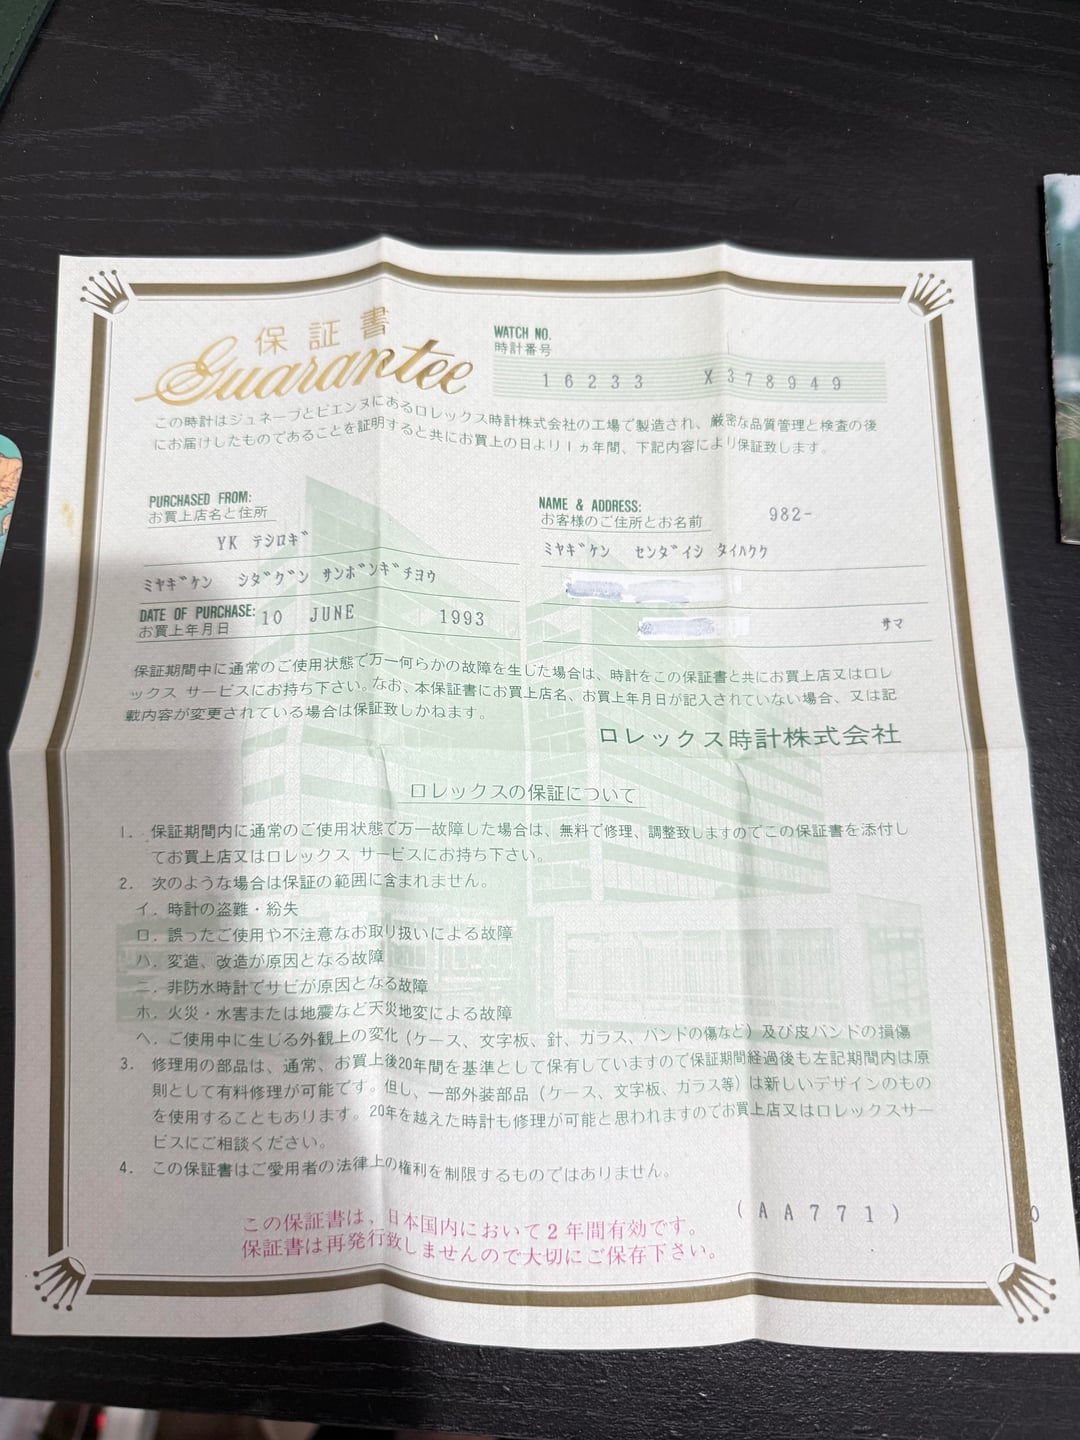 保証書
Guarantee
WATCH NO.
時計番号
16233 X378949
この時計はジュネーブとビエンヌにあるロレックス時計株式会社の工場で製造され、厳密な品質管理と検査の後
にお届けしたものであることを証明すると共にお買上の日より1ヵ年間、下記内容により保証致します。
PURCHASED FROM:
お買上店名と住所
YK テシロギ
ミヤギケン シダグン サンボンギチヨウ
DATE OF PURCHASE: 10 JUNE 1993
お買上年月日
NAME & ADDRESS:
お客様のご住所とお名前
982-
ミヤギケン センダイシ タイハクク
サマ
保証期間中に通常のご使用状態で万一何らかの故障を生した場合は、時計をこの保証書と共にお買上店又はロレ
ックス サービスにお持ち下さい。なお、本保証書にお買上店名、お買上年月日が記入されていない場合、又は記
載内容が変更されている場合は保証致しかねます。
ロレックス時計株式会社
ロレックスの保証について
1. 保証期間内に通常のご使用状態で万一故障した場合は、無料で修理、調整致しますのでこの保証書を添付し
てお買上店又はロレックス サービスにお持ち下さい。
2. 次のような場合は保証の範囲に含まれません。
イ. 時計の盗難・紛失
ロ. 誤ったご使用や不注意なお取り扱いによる故障
ハ. 変造、改造が原因となる故障
ニ. 非防水時計でサビが原因となる故障
ホ. 火災・水害または地震など天災地変による故障
ヘ. ご使用中に生じる外観上の変化（ケース、文字板、針、ガラス、バンドの傷など）及び皮バンドの損傷
3. 修理用の部品は、通常、お買上後20年間を基準として保有していますので保証期間経過後も左記期間内は原
則として有料修理が可能です。但し、一部外装部品（ケース、文字板、ガラス等）は新しいデザインのもの
を使用することもあります。20年を越えた時計も修理が可能と思われますのでお買上店又はロレックスサー
ビスにご相談ください。
4. この保証書はご愛用者の法律上の権利を制限するものではありません。
(AA771)
0
この保証書は、日本国内において2年間有効です。
保証書は再発行致しませんので大切にご保存下さい。